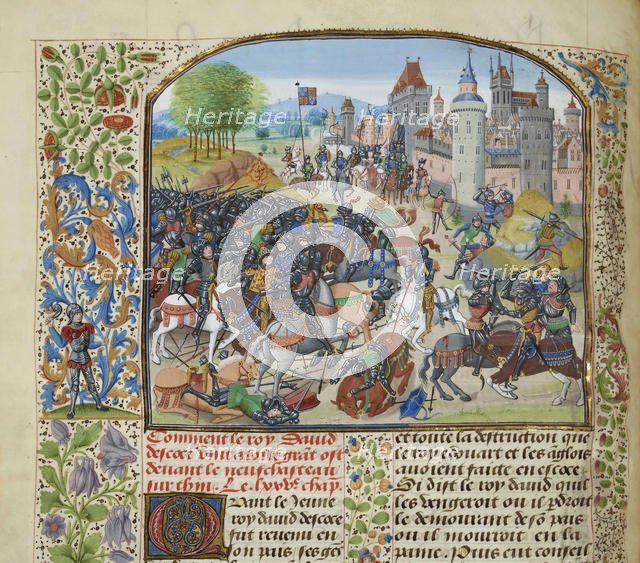 Heritage Heritage
Heritage Heritage
Heritage Heritage
C
Comment le roy David
descoce vint a tout grāt ost
devant le neufchasteau
sur thin. Le. lxxvs. chap.
Quant le Jeune
roy david descoce
fut revenu en
son pais ses gēs
et toute la destruction que
le roy edouart et les āglois
avoient faicte en escoce
Si dist le roy david quil
les vengeroit ou il p̄droit
le demourant de sō pais
ou il mourroit en la
paine. Puis eut conseil